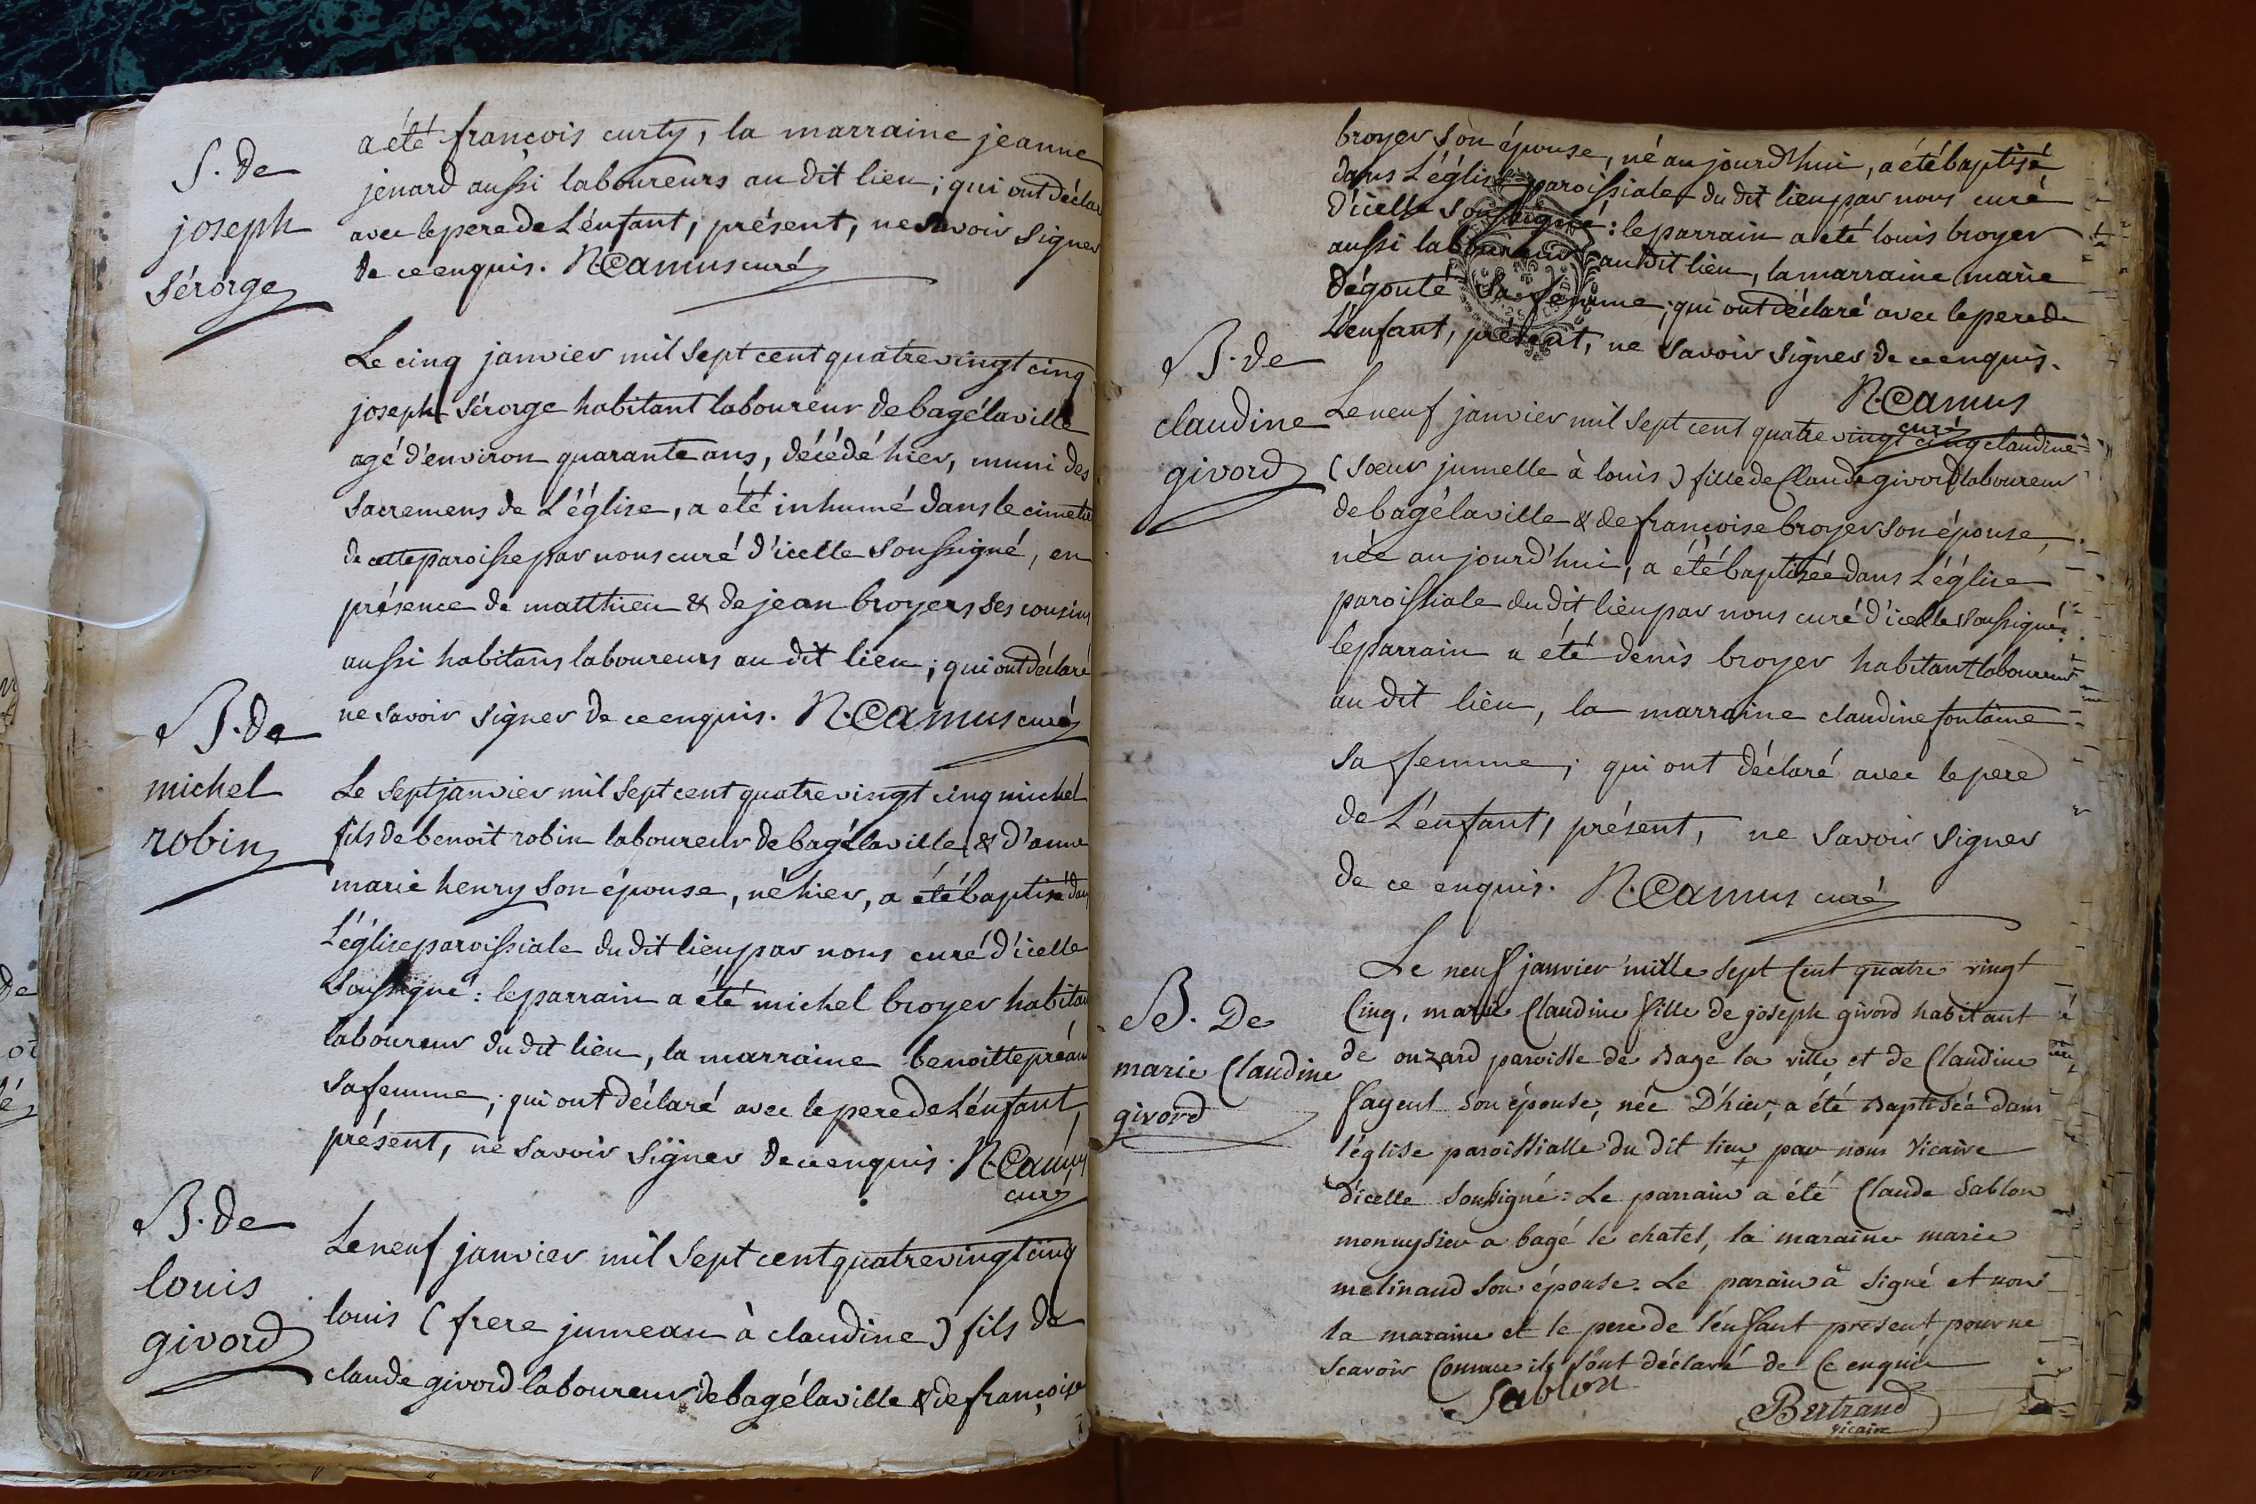 a été françois curty, la marraine jeanne
jenard aussi laboureurs au dit lieu; qui ont déclaré
avec le pere de L'énfant, présent, ne savoir signer
de ce enquis. N. Camus curé
S. de
joseph
sérorge
Le cinq janvier mil sept cent quatre vingt cinq
joseph sérorge habitant laboureur de bagélaville
agé d'énviron quarante ans, décédé hier, muni des
sacremens de L'église, a été inhumé dans le cimetie
de cette paroisse par nous curé d'icelle soussigné, en
présence de matthieu & de jean broyers ses cousins
aussi habitans laboureurs au dit lieu; qui ont déclaré
ne savoir signer de ce enquis. N. Camus curé
B. de
michel
robin
Le sept janvier mil sept cent quatre vingt cinq michel
fils de benoit robin laboureur de bagélaville & d'anne
marie henry son épouse, né hier, a été baptisé dans
L'église paroissiale du dit lieu par nous curé d'icelle
soussigné: le parrain a été michel broyer habitan
laboureur du dit lieu, la marraine benoitte préau
sa femme; qui ont déclaré avec le pere de L'énfant,
présent, ne savoir signer de ce enquis. N. Camus
curé
B. de
louis
givord
Le neuf janvier mil sept cent quatre vingt cinq
louis (frere jumeau à claudine) fils de
claude givord laboureur de bagélaville & de françoise
broyer son épouse, né aujourd'hui, a été baptisé
dans L'église paroissiale du dit lieu par nous curé
d'icelle soussigné: le parrain a été louis broyer
aussi laboureur au dit lieu, la marraine marie
dégouté sa femme; qui ont déclaré avec le pere de
L'énfant, présent, ne savoir signer de ce enquis.
N. Camus
curé
B. de
claudine
givord
Le neuf janvier mil sept cent quatre vingt cinq claudine
(soeur jumelle à louis) fille de Claude givord laboureur
de bagélaville & de françoise broyer son épouse,
née aujourd'hui, a été baptisée dans L'église
paroissiale du dit lieu par nous curé d'icelle soussigné:
le parrain a été denis broyer habitant laboureur
au dit lieu, la marraine claudine fontaine
sa femme; qui ont déclaré avec le pere
de L'énfant, présent, ne savoir signer
de ce enquis. N. Camus curé
B. De
marie Claudine
givord
Le neuf janvier mille sept Cent quatre vingt
Cinq, marie Claudine fille de joseph givord habitant
de ouzard paroisse de Bagé la ville et de Claudine
fayeul son épouse, née D'hier, a été Baptisée dans
l'église paroissialle du dit lieu par nous vicaire
d'icelle soussigné: Le parrain a été Claude Sablon
menuysier a bagé le chatel, la maraine marie
melinaud son épouse. Le parain a signé et non
la maraine et le pere de l'énfant présent, pour ne
scavoir Comme ils l'ont déclaré de Ce enquis
Sablon
Bertrand
vicaire